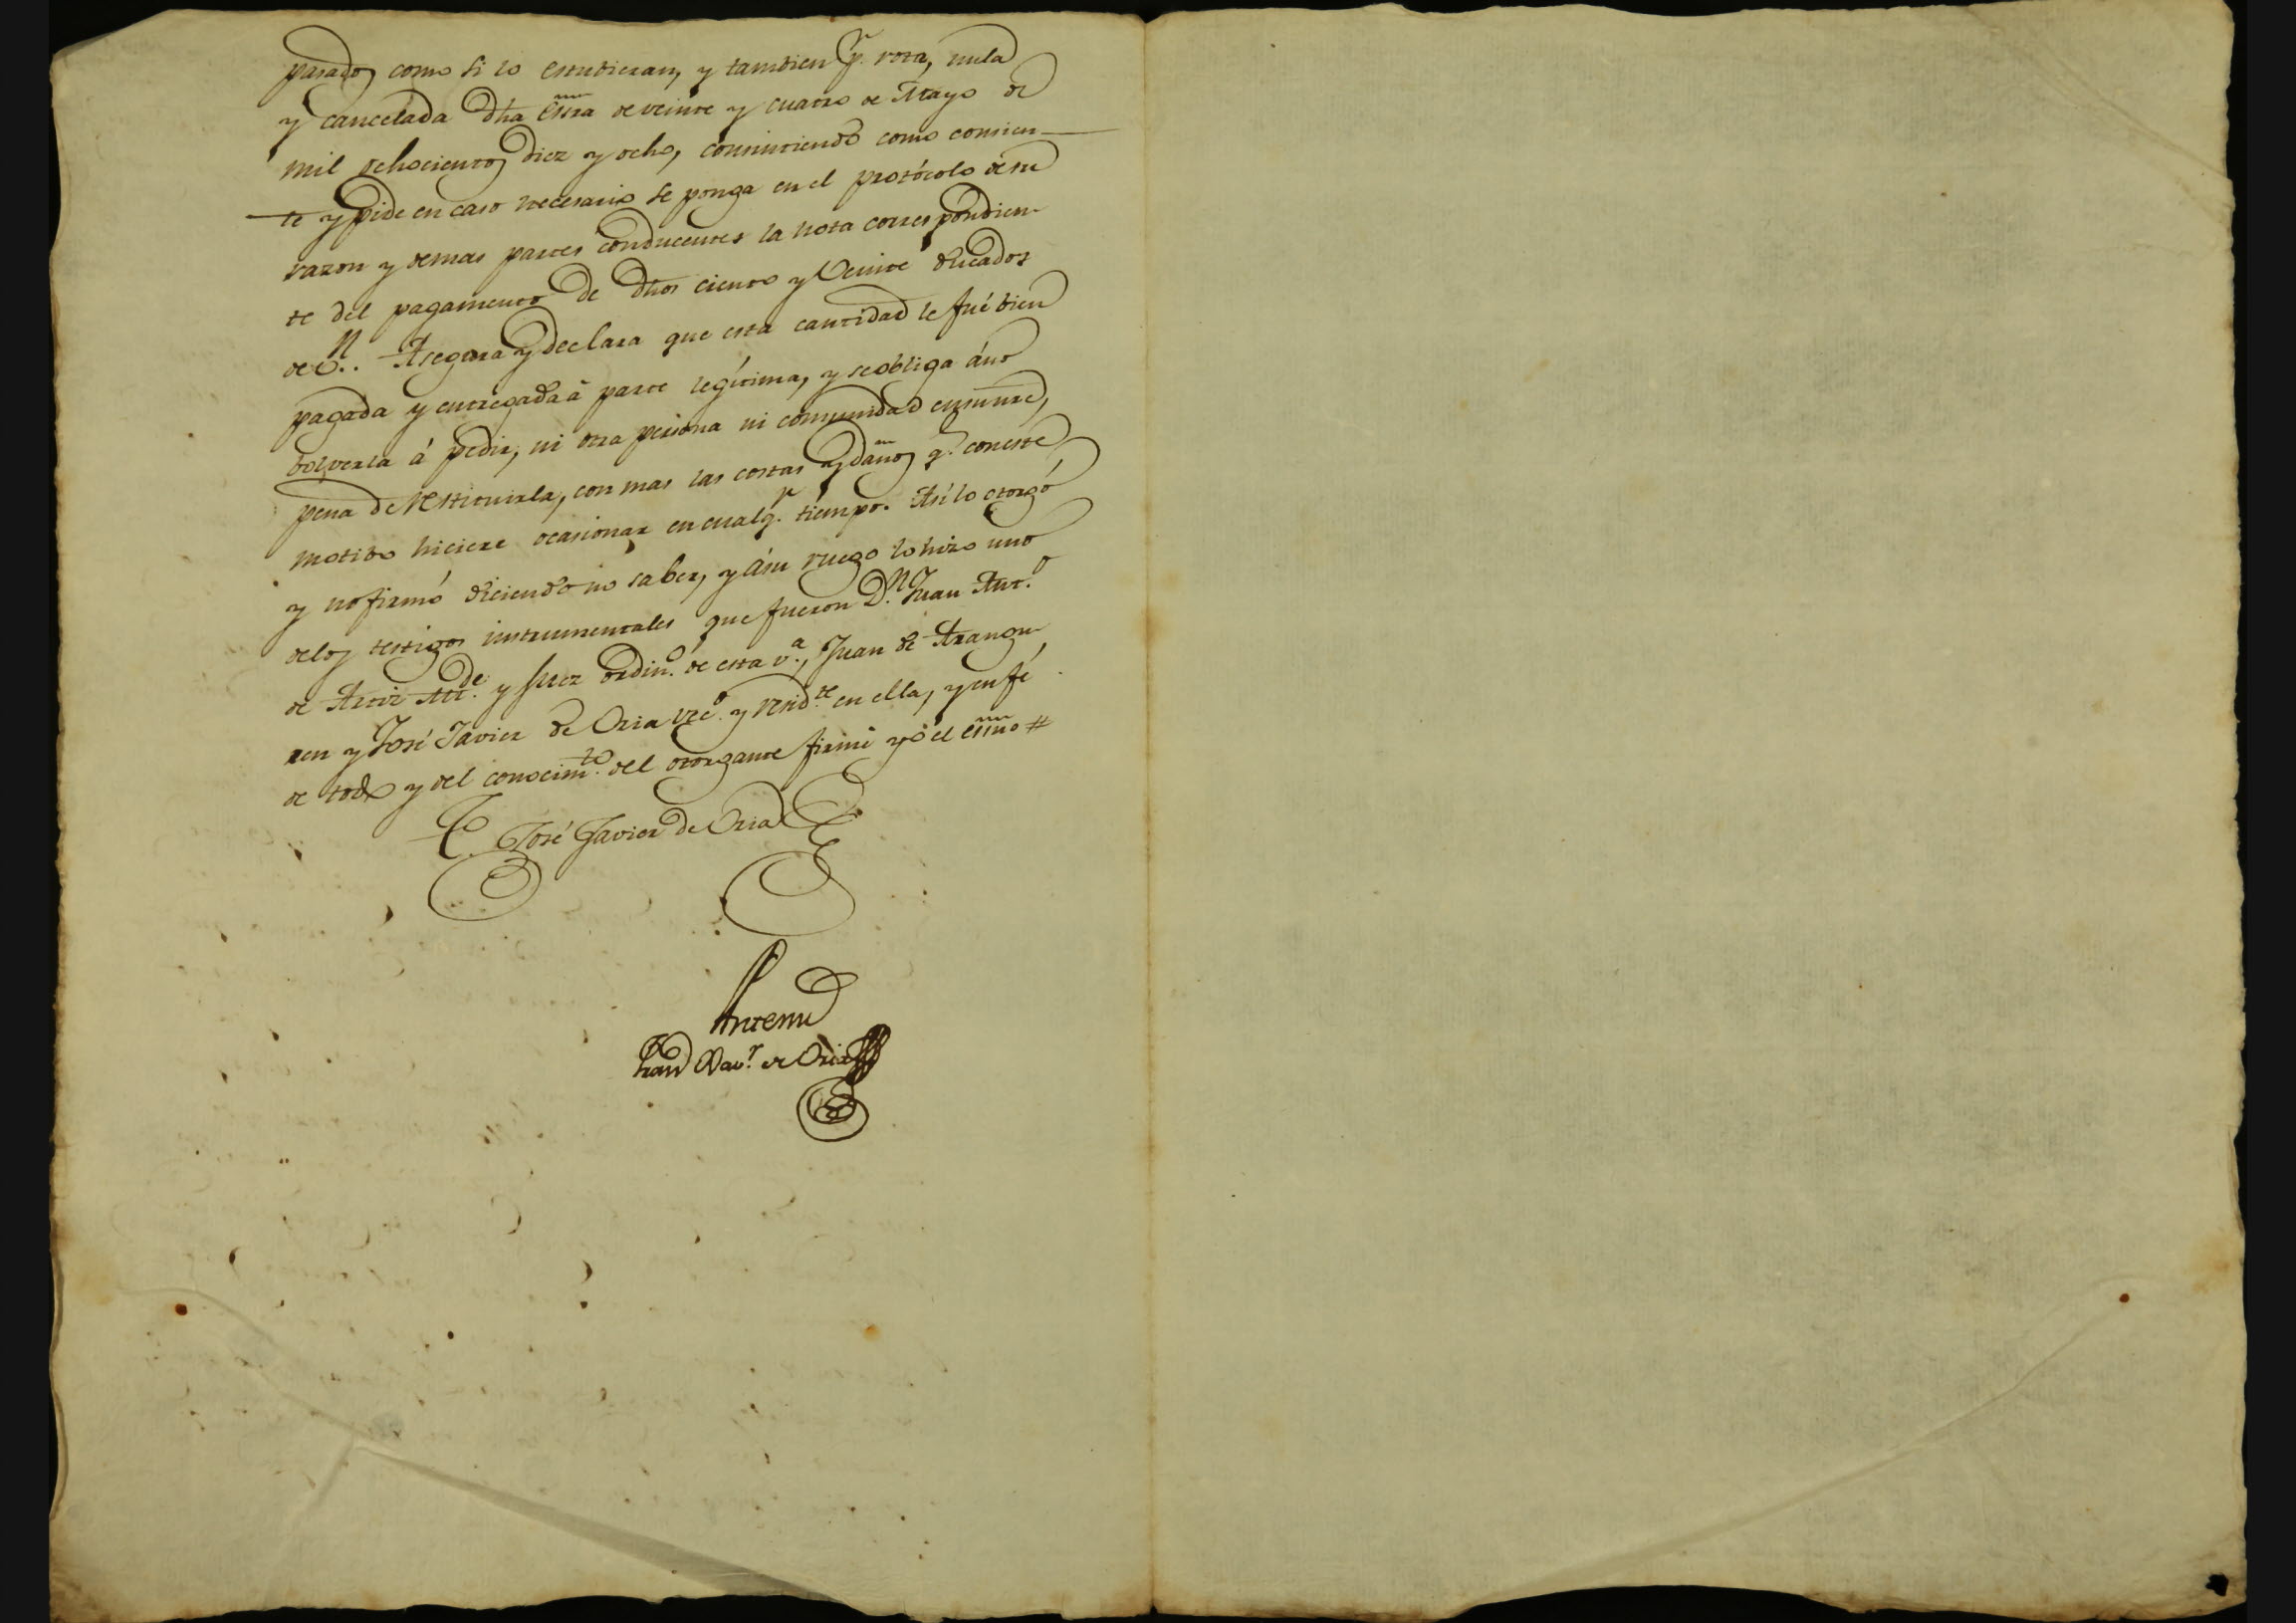 pasados como si lo estubieran, y tambien p.r rota, nula
y cancelada dha Essra de veinte y cuatro de Mayo de
mil ochocientos diez y ocho, consintiendo como consien-
te y pide en caso necesario se ponga en el protócolo de su
razon y demas partes conducentes la nota correspondien-
te del pagamento de dhos ciento y Veinte ducados
de v.n. Asegura y declara que esta cantidad le fué bien
pagada y entregada á parte legítima, y se obliga á no
bolverla á pedir, ni otra persona ni comunidad en su nre,
pena de restituirla, con mas las costas y daños q.e con este
motibo hiciere ocasionar en cualq.r tiempo. Así lo otorgó
y no firmó diciendo no saber, y á su ruego lo hizo uno
de los testigos instrumentales que fueron D.n Juan Ant.o
de Alc.de y Juez ordin.o de esta v.a, Juan de Arangu-
ren y José Javier de Oria vec.o y resid.te en ella, y en fé
de todo y del conocim.to del otorgante firmé yo el essno #
T.o José Javier de Oria
Antemi
Xav.r de Oria